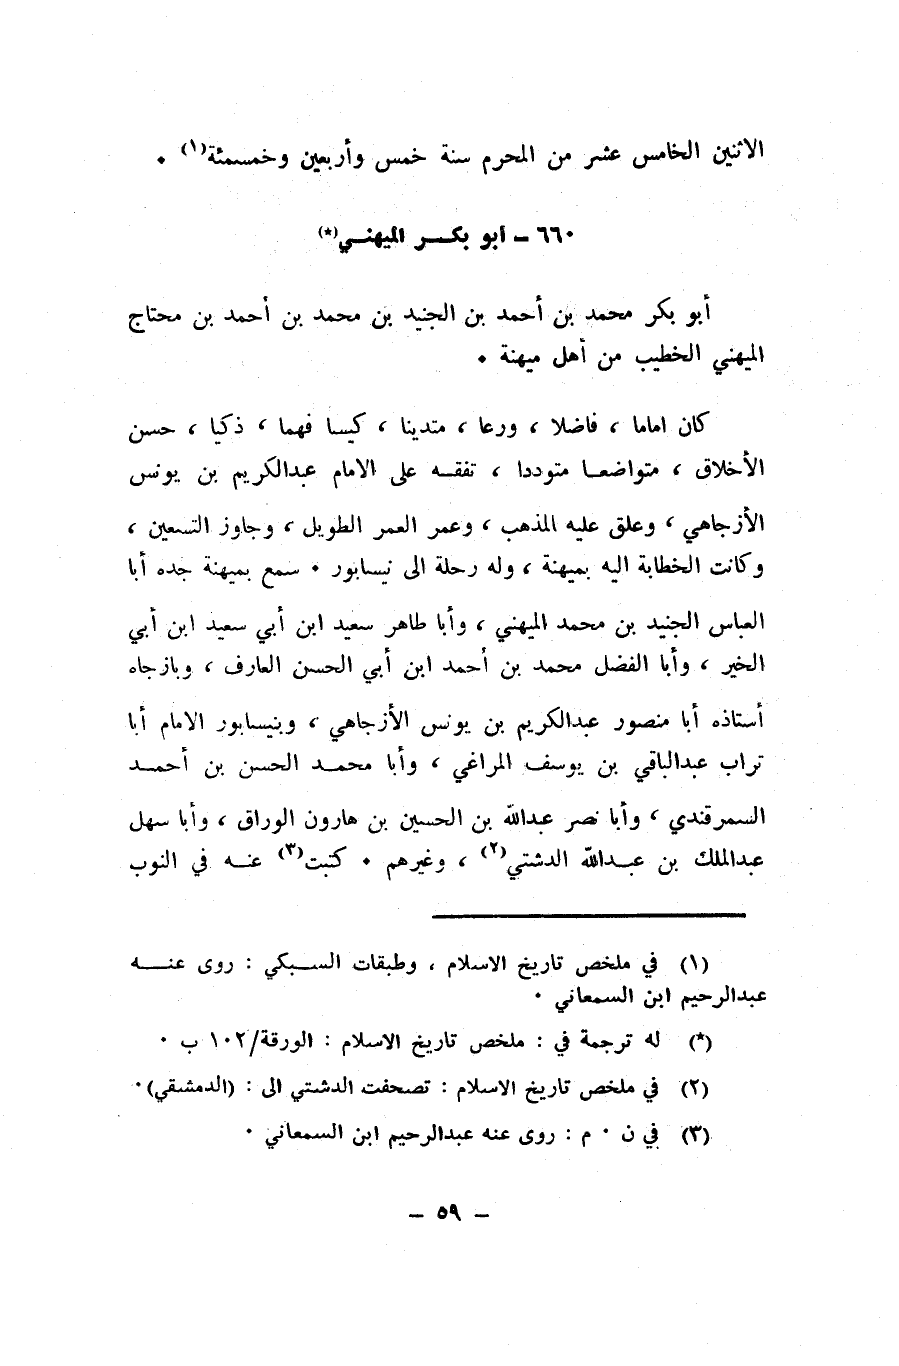 الاثنين الخامس عشر من المحرم سنة خمس وأربعين وخمسمئة(١) .
٦٦٠ ـ أبو بكر الميهني(*)
أبو بكر محمد بن أحمد بن الجنيد بن محمد بن أحمد بن محتاج
الميهني الخطيب من أهل ميهنة .
كان اماما ، فاضلا ، ورعا ، متدينا ، كيسا فهما ، ذكيا ، حسن
الأخلاق ، متواضعا متوددا ، تفقه على الامام عبدالكريم بن يونس
الأزجاهي ، وعلق عليه المذهب ، وعمر العمر الطويل ، وجاوز التسعين ،
وكانت الخطابة اليه بميهنة ، وله رحلة الى نيسابور . سمع بميهنة جده أبا
العباس الجنيد بن محمد الميهني ، وأبا طاهر سعيد ابن أبي سعيد ابن أبي
الخير ، وأبا الفضل محمد بن أحمد ابن أبي الحسن العارف ، وبازجاه
أستاذه أبا منصور عبدالكريم بن يونس الأزجاهي ، وبنيسابور الامام أبا
تراب عبدالباقي بن يوسف المراغي ، وأبا محمد الحسن بن أحمد
السمرقندي ، وأبا نصر عبدالله بن الحسين بن هارون الوراق ، وأبا سهل
عبدالملك بن عبدالله الدشتي(٢) ، وغيرهم . كتبت(٣) عنه في النوب
(١) في ملخص تاريخ الاسلام ، وطبقات السبكي : روى عنه
عبدالرحيم ابن السمعاني .
(*) له ترجمة في : ملخص تاريخ الاسلام : الورقة/١٠٢ ب .
(٢) في ملخص تاريخ الاسلام : تصحفت الدشتي الى : (الدمشقي) .
(٣) في ن . م : روى عنه عبدالرحيم ابن السمعاني .
ـ ٥٩ ـ